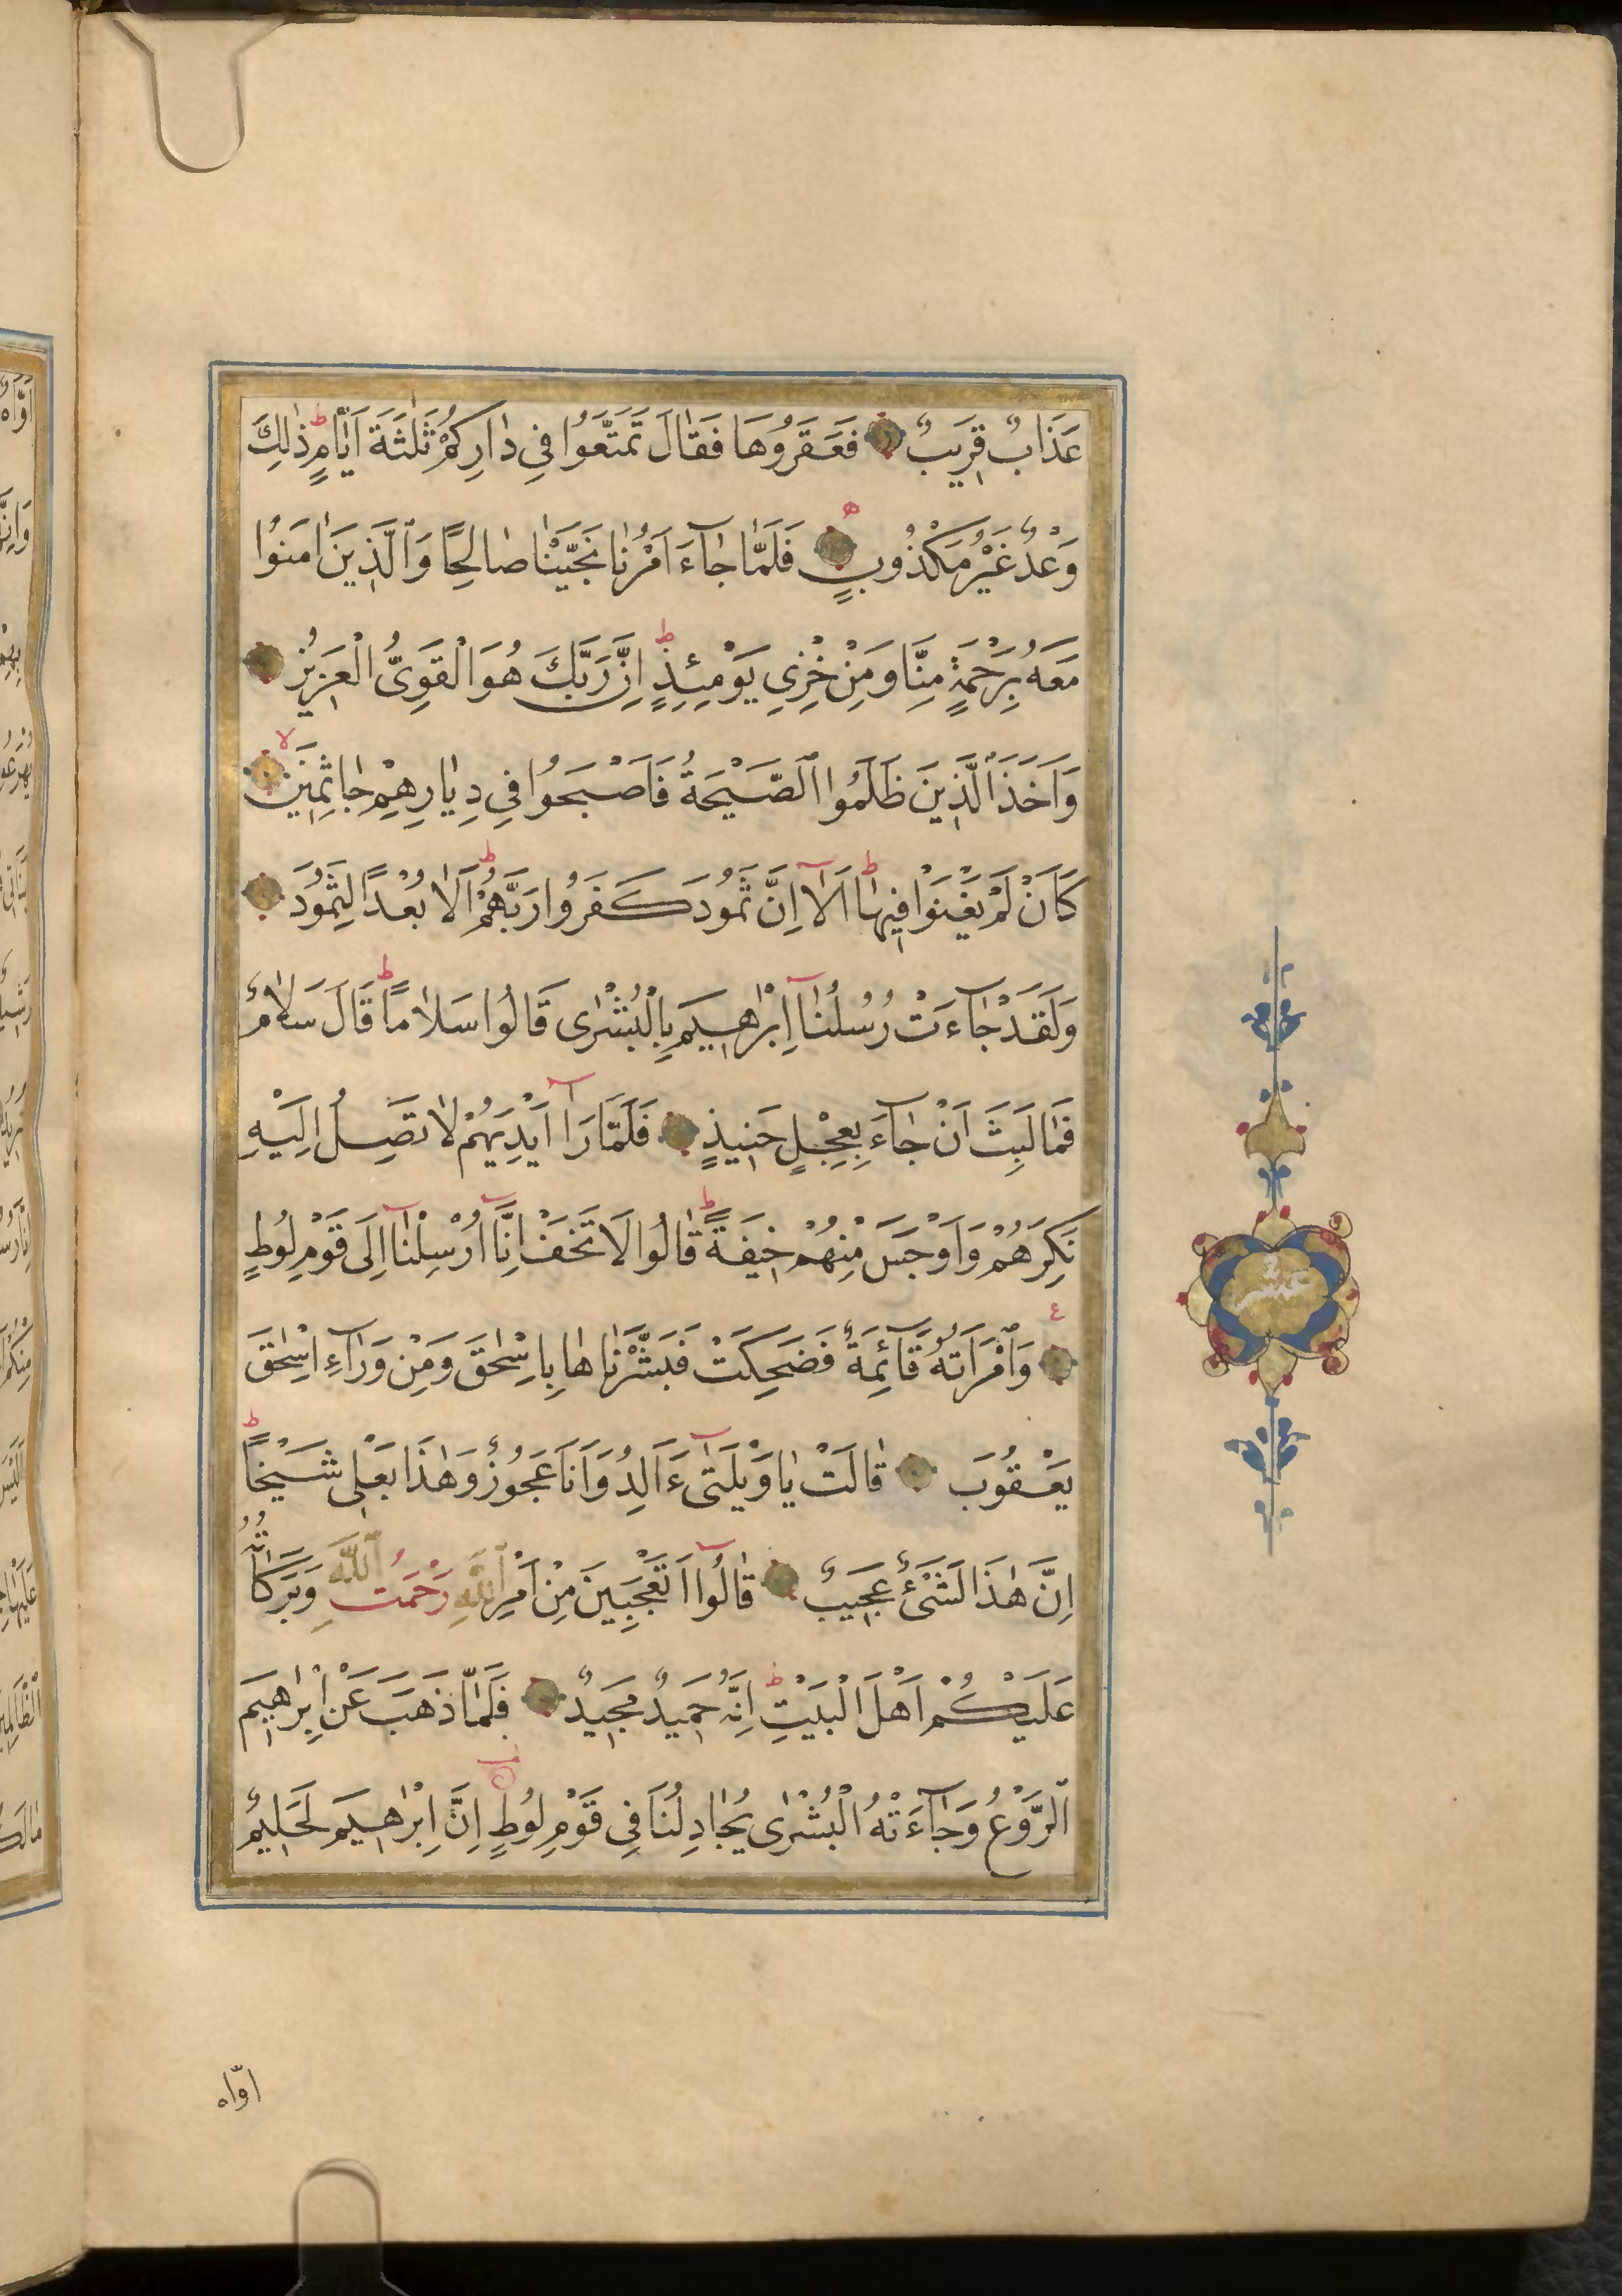 عَذَابٌ قَرِيبٌ فَعَقَرُوهَا فَقَالَ تَمَتَّعُوا فِي دَارِكُمْ ثَلٰثَةَ اَيَّامٍ ط ذٰلِكَ
وَعْدٌ غَيْرُ مَكْذُوبٍ ه فَلَمَّا جَآءَ اَمْرُنَا نَجَّيْنَا صَالِحًا وَالَّذِينَ اٰمَنُوا
مَعَهُ بِرَحْمَةٍ مِنَّا وَمِنْ خِزْيِ يَوْمِئِذٍ ط اِنَّ رَبَّكَ هُوَ الْقَوِىُّ الْعَزِيزُ
وَاَخَذَ الَّذِينَ ظَلَمُوا الصَّيْحَةُ فَاَصْبَحُوا فِي دِيَارِهِمْ جَاثِمِينَ لا
كَاَنْ لَمْ يَغْنَوْا فِيهَا ط اَلَآ اِنَّ ثَمُودَ كَفَرُوا رَبَّهُمْ ط اَلَا بُعْدًا لِثَمُودَ
وَلَقَدْ جَآءَتْ رُسُلُنَآ اِبْرٰهِيمَ بِالْبُشْرٰى قَالُوا سَلَامًا ط قَالَ سَلَامٌ
فَمَا لَبِثَ اَنْ جَآءَ بِعِجْلٍ حَنِيذٍ فَلَمَّا رَآ اَيْدِيَهُمْ لَا تَصِلُ اِلَيْهِ
نَكِرَهُمْ وَاَوْجَسَ مِنْهُمْ خِيفَةً ط قَالُوا لَا تَخَفْ اِنَّآ اُرْسِلْنَآ اِلٰى قَوْمِ لُوطٍ
ع وَامْرَاَتُهُ قَآئِمَةٌ فَضَحِكَتْ فَبَشَّرْنَاهَا بِاِسْحٰقَ وَمِنْ وَرَآءِ اِسْحٰقَ
يَعْقُوبَ قَالَتْ يَا وَيْلَتٰىٓ ءَاَلِدُ وَاَنَا عَجُوزٌ وَهٰذَا بَعْلِي شَيْخًا ط
اِنَّ هٰذَا لَشَىْءٌ عَجِيبٌ قَالُوٓا اَتَعْجَبِينَ مِنْ اَمْرِ اللّٰهِ رَحْمَتُ اللّٰهِ وَبَرَكَاتُهُ
عَلَيْكُمْ اَهْلَ الْبَيْتِ ط اِنَّهُ حَمِيدٌ مَجِيدٌ فَلَمَّا ذَهَبَ عَنْ اِبْرٰهِيمَ
الرَّوْعُ وَجَآءَتْهُ الْبُشْرٰى يُجَادِلُنَا فِي قَوْمِ لُوطٍ اِنَّ اِبْرٰهِيمَ لَحَلِيمٌ
اوّاه
عشر